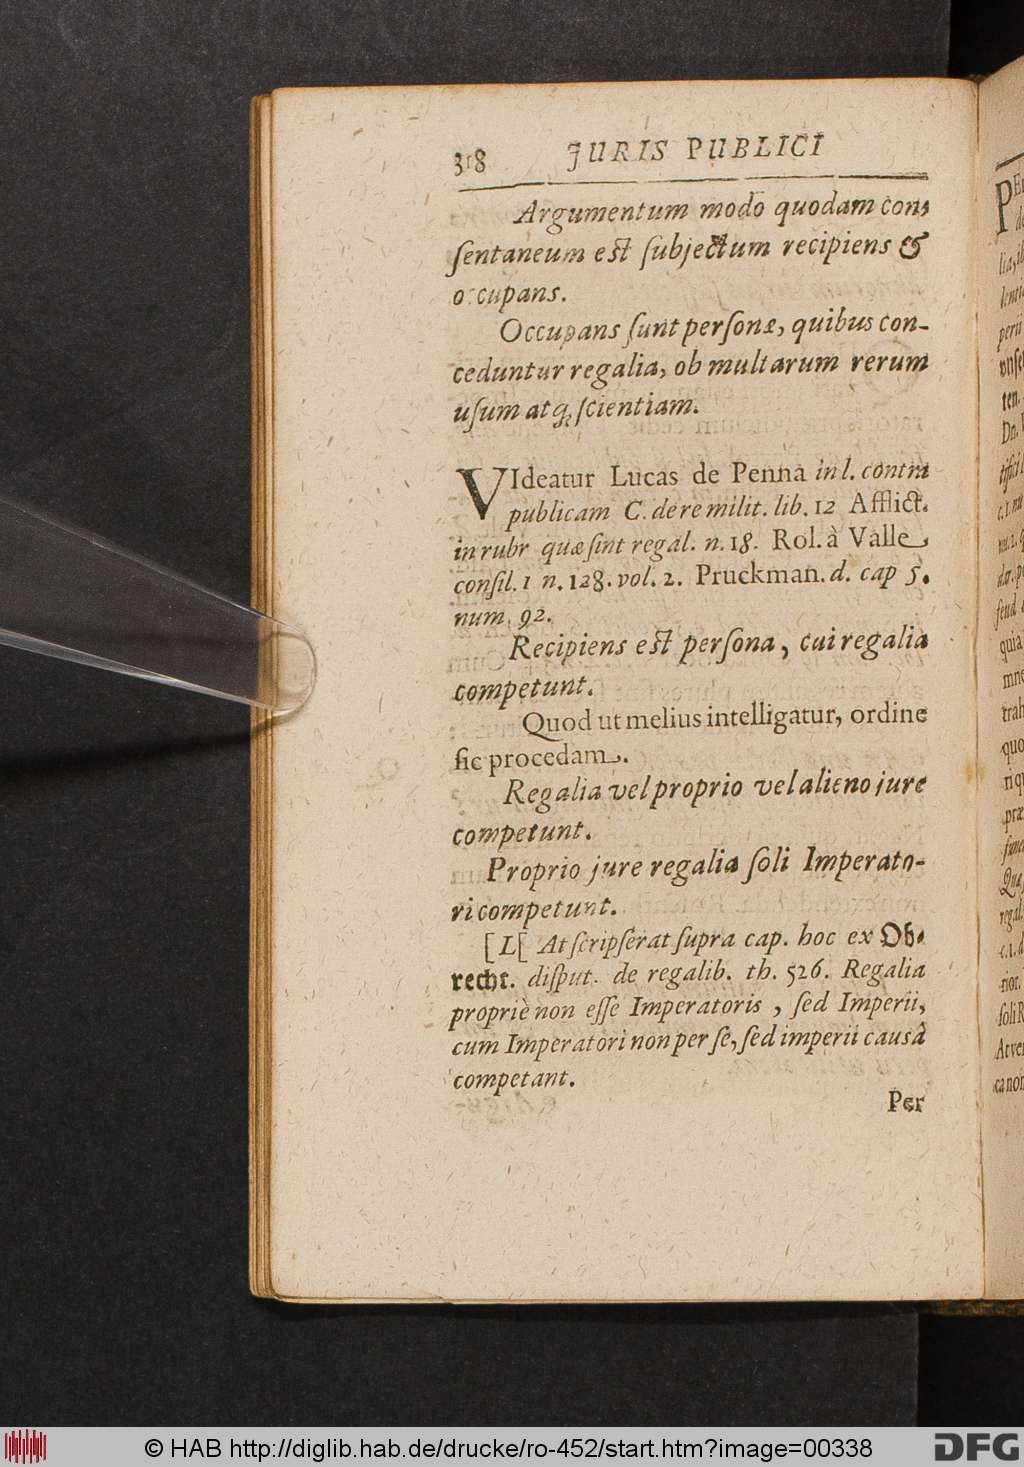 318 JURIS PUBLICI
Argumentum modo quodam con-
ſentaneum eſt ſubjectum recipiens &
occupans.
Occupans ſunt perſonæ, quibus con-
ceduntur regalia, ob multarum rerum
uſum atq; ſcientiam.
VIdeatur Lucas de Penna in l. contra
publicam C. de re milit. lib. 12 Afflict.
in rubr quæ ſint regal. n. 18. Rol. à Valle
conſil. 1 n. 128. vol. 2. Pruckman. d. cap 5.
num. 92.
Recipiens eſt perſona, cui regalia
competunt.
Quod ut melius intelligatur, ordine
ſic procedam.
Regalia vel proprio vel alieno jure
competunt.
Proprio jure regalia ſoli Imperato-
ri competunt.
[L[ At ſcripſerat ſupra cap. hoc ex Ob-
recht. diſput. de regalib. th. 526. Regalia
propriè non eſſe Imperatoris, ſed Imperii,
cum Imperatori non per ſe, ſed imperii causâ
competant.
Per
© HAB http://diglib.hab.de/drucke/ro-452/start.htm?image=00338
DFG